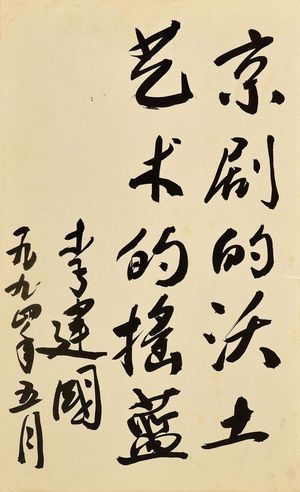 京剧的沃土
艺术的摇蓝
李建國
一九九四年五月